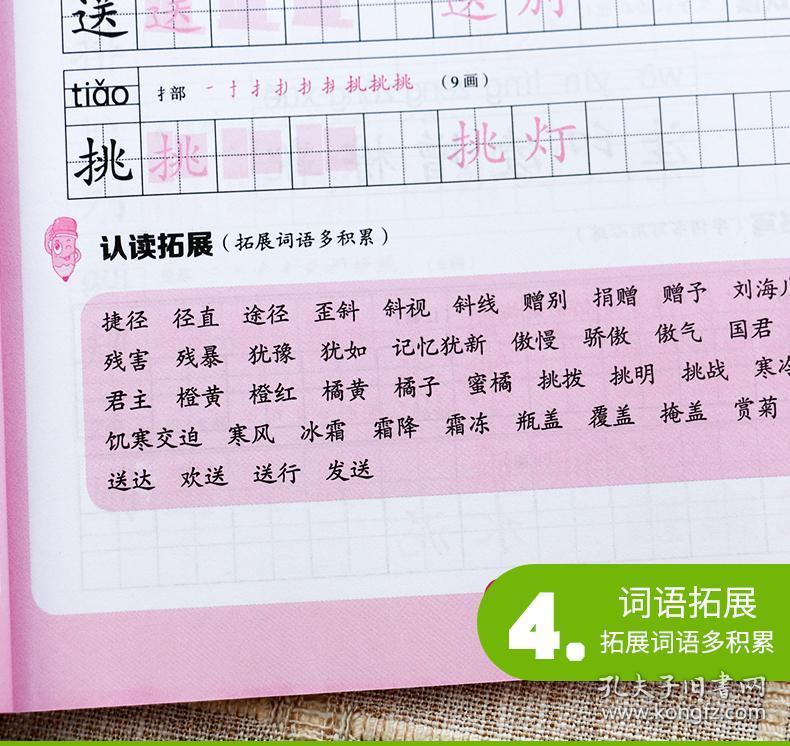 送 送 送别
tiǎo 扌部 (9画)
挑 挑 挑灯
认读拓展(拓展词语多积累)
捷径 径直 途径 歪斜 斜视 斜线 赠别 捐赠 赠予 刘海
残害 残暴 犹豫 犹如 记忆犹新 傲慢 骄傲 傲气 国君
君主 橙黄 橙红 橘黄 橘子 蜜橘 挑拨 挑明 挑战 寒冷
饥寒交迫 寒风 冰霜 霜降 霜冻 瓶盖 覆盖 掩盖 赏菊
送达 欢送 送行 发送
4. 词语拓展
拓展词语多积累
孔夫子旧书网
www.kongfz.com